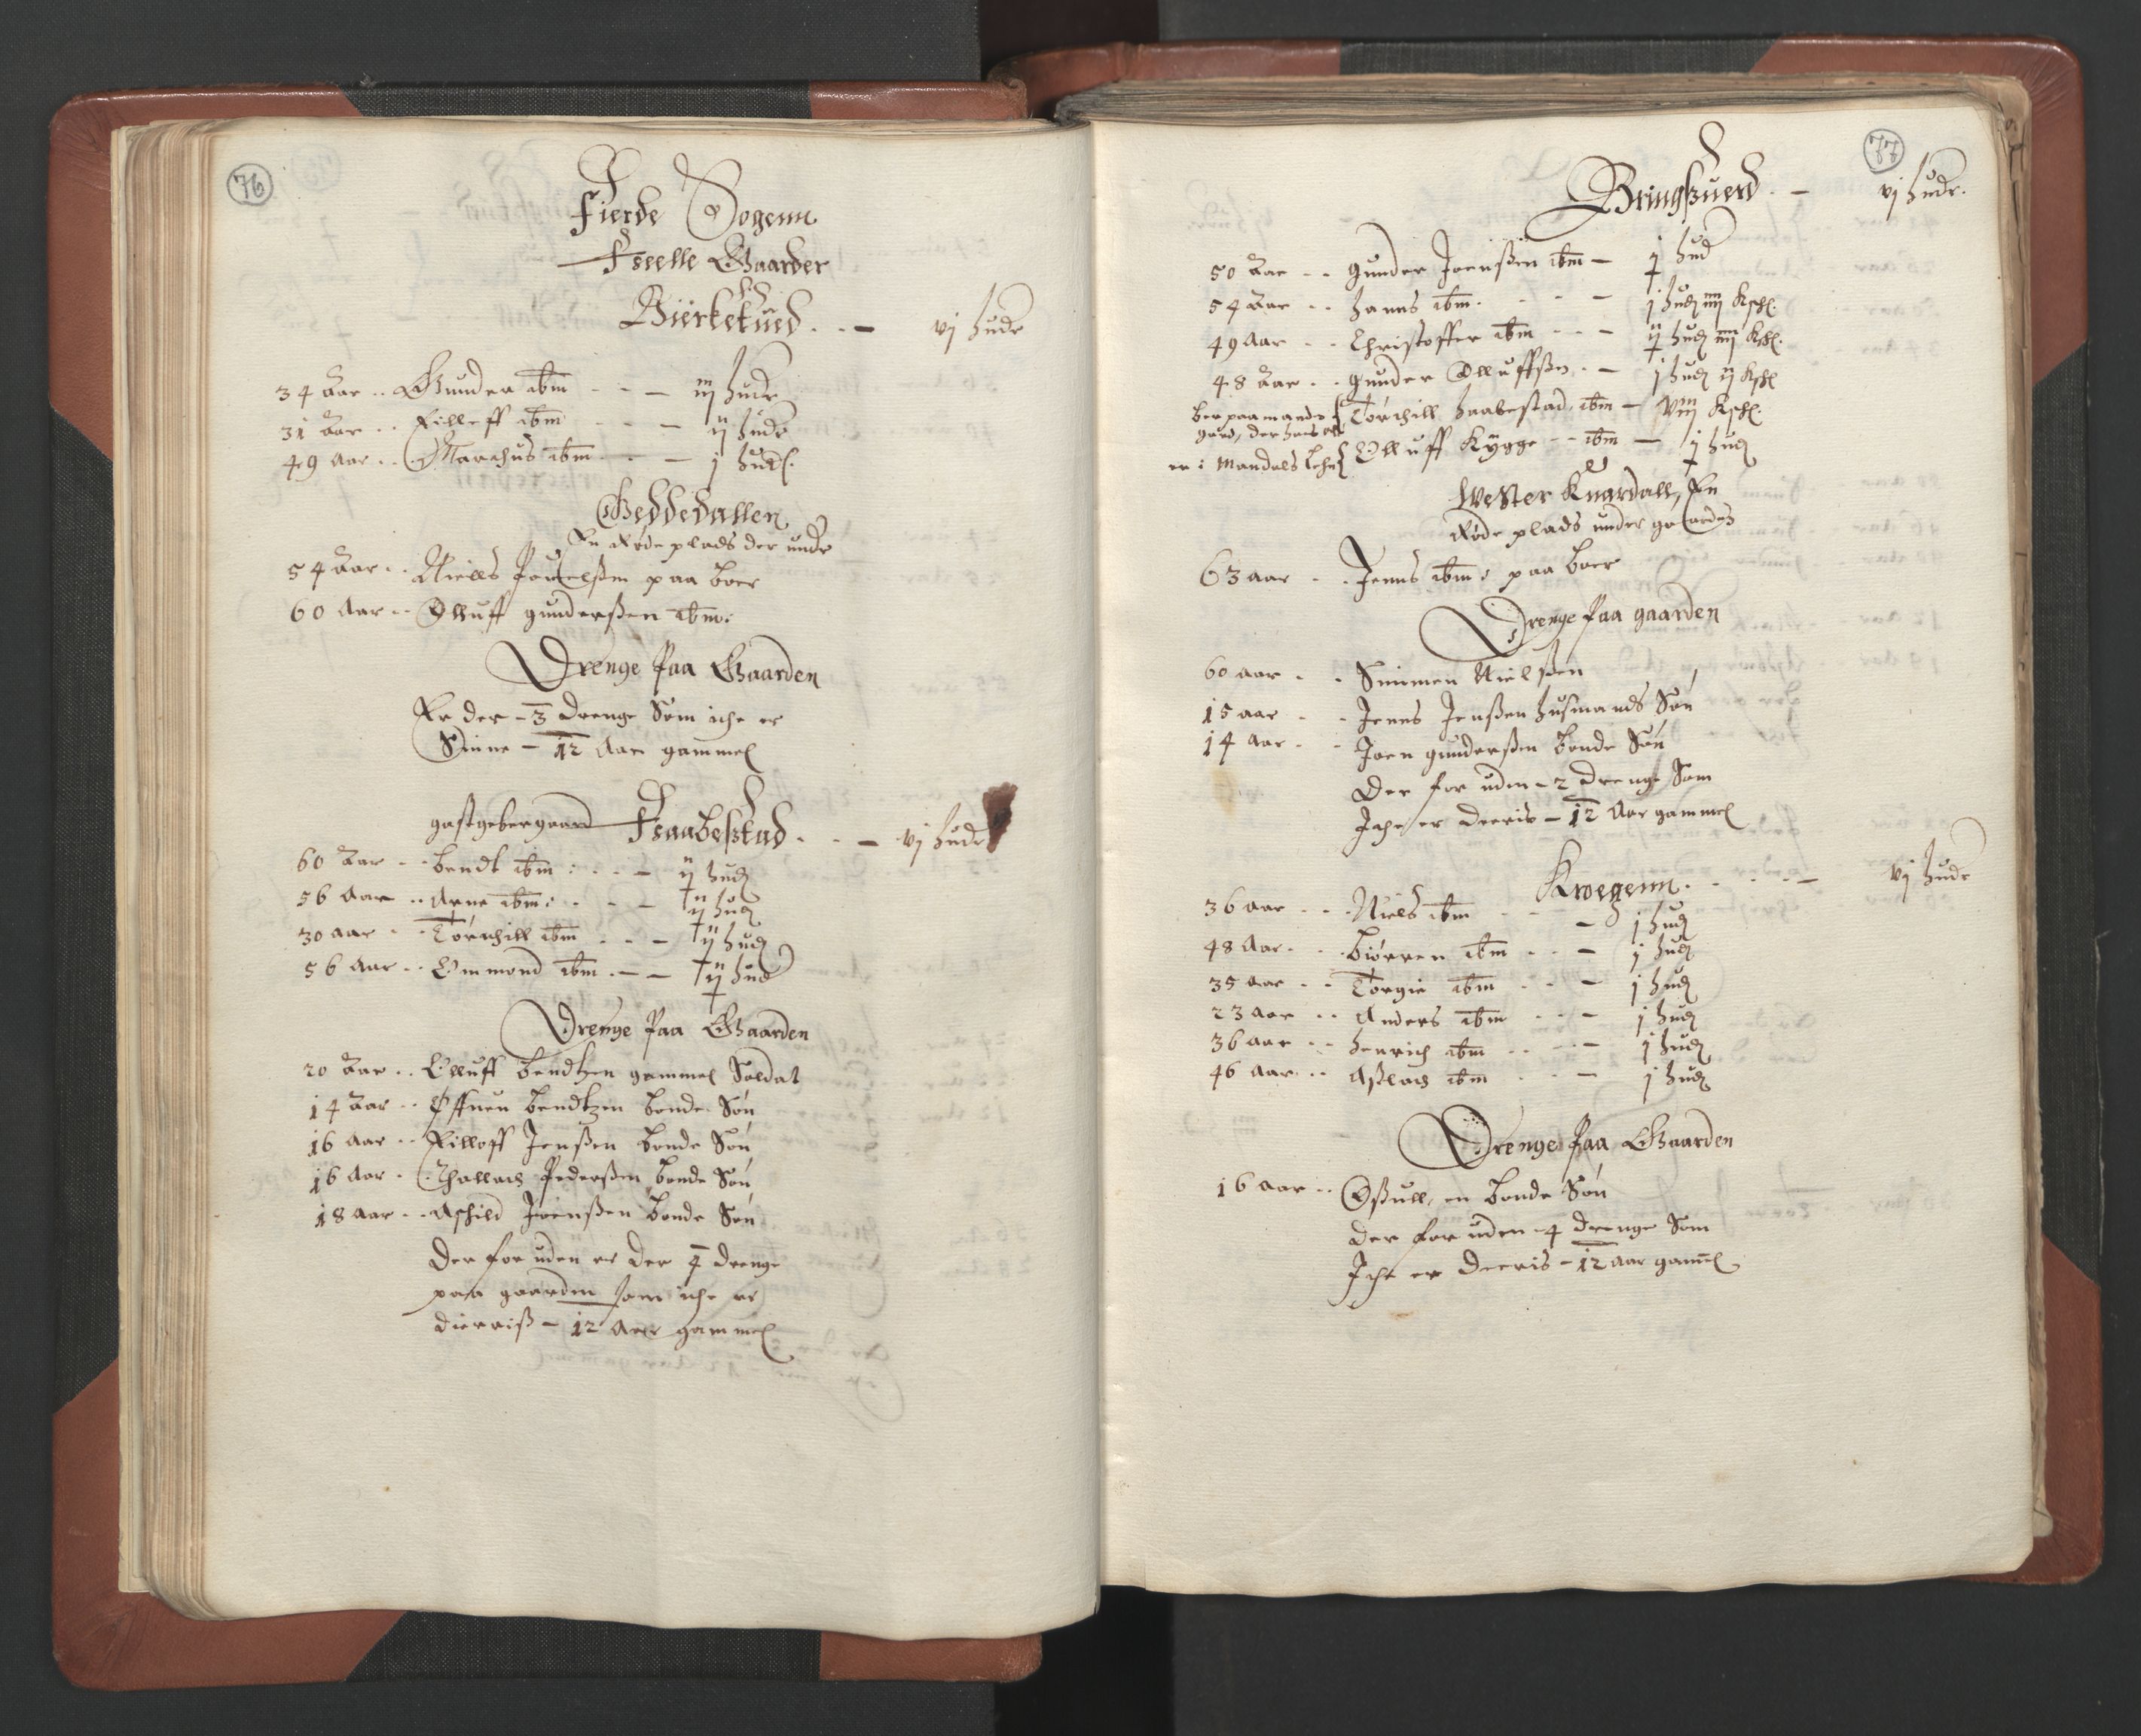 76
Fierde Sogenn
Heelle Gaarder
Bierketued . . – vj hude
34 Aar .. Gunder ibm – iij hude
31 Aar .. Eilleff ibm – ij hude
49 Aar .. Marchus ibm – j hud.
Geddedallen
En øde plads der unde
54 Aar .. Niells Pouelssen paa boer
60 Aar .. Olluff gunderssen ibm:
Drenge Paa Gaarden
Er der – 3 drenge Som iche er
Sinne – 12 Aar gammel
gastgebergaard Haabesstad . . – vj hude
60 Aar .. bendt ibm : . . – ij hud
56 Aar .. Arne ibm : . – ij hud
30 aar .. Torchill ibm . . – ij hud
56 Aar .. Ommond ibm . – – ij hud
Drenge Paa Gaarden
20 Aar .. Olluff bendtzen gammel Soldat
14 Aar .. Effuen bendtzen bonde Søn
16 Aar .. Eilloff Jenssen bonde Søn
16 Aar . Thallach Pederssen bonde Søn
18 Aar .. Aschild Joenssen bonde Søn
Der for uden er der 4 drenge
paa gaarden som iche er
dierriss – 12 Aar gammel
77
Bringsuerd . – vj hude.
50 Aar .. gunder Joenssen ibm – j hud
54 Aar .. hanns ibm . – j hud iiij Ksk.
49 Aar .. Christoffer ibm . . – ij hud iiij Ksk.
48 Aar .. gunder Olluffssen . – j hud ij Ksk
boer paa mands Torchill haabestad ibm – viij Ksk.
gord, der hans
er i Mandals lehn Olluff Kygge – ibm – j hud
Wester Knardall, En
øde plads under gaarden
63 aar .. Jenns ibm : paa boer
Drenge Paa gaarden
60 aar . . Simmen Nielssen
15 aar . . Jenns Jenssen husmands Søn
14 Aar . . Joen gunderssen bonde Søn
Der for uden – 2 drenge Som
Iche er deeris – 12 Aar gammel
Kroegenn . . . . – vj hude
36 aar . . . Niels ibm – j hud
48 Aar . . . biørren ibm . . – j hud
35 aar . . Torgie ibm . . – j hud
23 aar .. Anders ibm . . – j hud
36 aar .. henrich ibm . . – j hud
46 Aar .. Asslach ibm . – j hud
Drenge Paa Gaarden
16 aar .. Ossull, en bonde Søn
der for uden – 4 drenge Som
Iche er deeris – 12 aar gamel